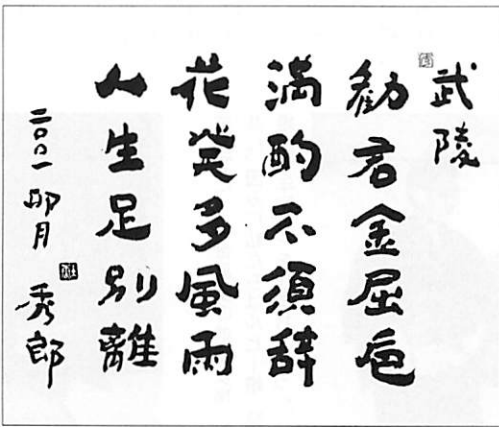 武陵
勧君金屈卮
満酌不須辞
花発多風雨
人生足別離
二〇〇一 卯月 秀郎